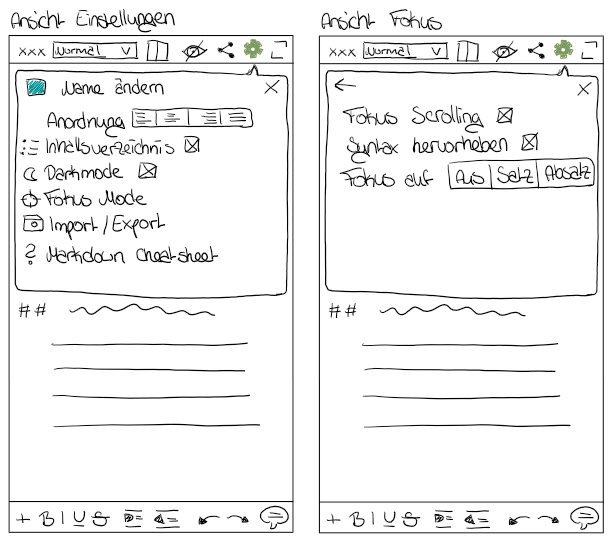 Ansicht Einstellungen
xxx Normal
Name ändern
Anordnung
Inhaltsverzeichnis
Darkmode
Fokus Mode
Import / Export
? Markdown cheatsheet
##
+ B I U S
Ansicht Fokus
xxx Normal
Fokus Scrolling
Syntax hervorheben
Fokus auf Aus Satz Absatz
##
+ B I U S